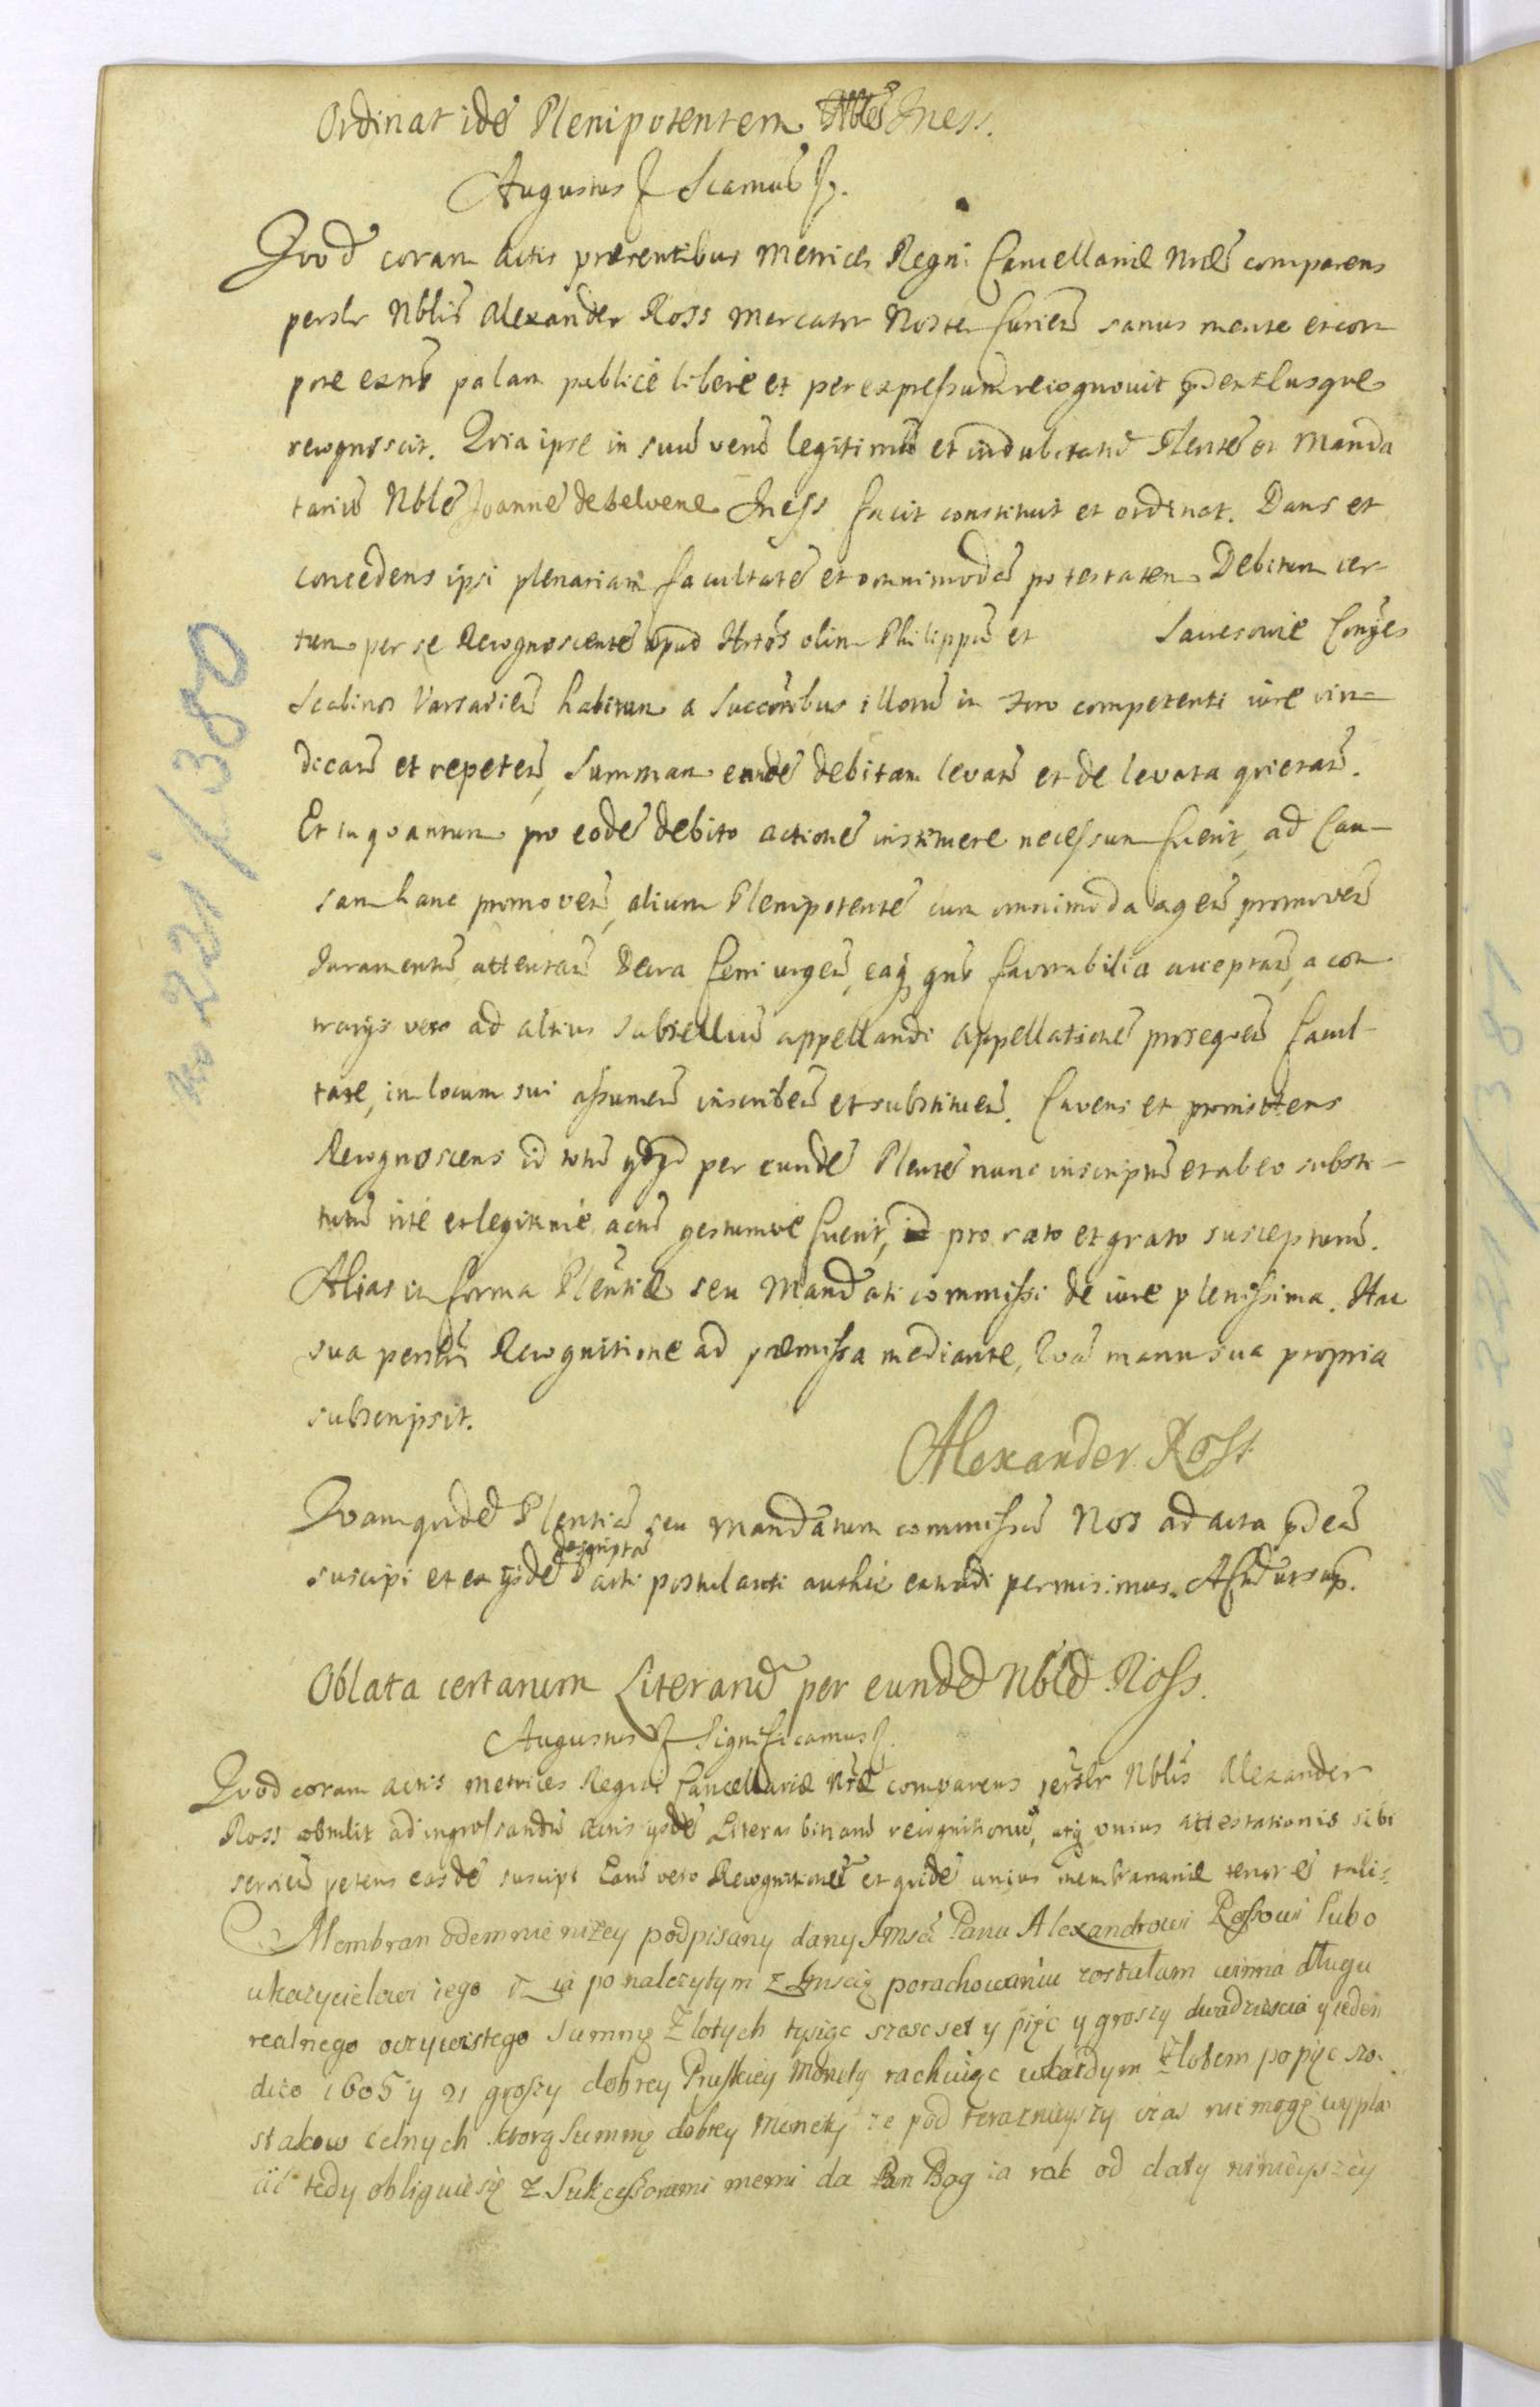 Ordinat idē Plenipotentem Iness.
Augustus Scamus
Quod coram actis præsentibus Metrices Regni Cancellariæ Nræ comparens
persłr Nblis Alexander Ross Mercator Noster Curien sanus mente et cor-
pore exns palam publicè liberè et per expressum recognovit
recognoscit. Quia ipse in suū verū legitimū et indubitatū Plentē et Manda
tariū Nblē Joannē de belvene Iness facit constituit et ordinat. Dans et
concedens ipsi plenariam facultatē et omnimodā potestatem Debitum cer-
tum per se Recognoscentē apud olim Philippū et
Scabinos Varsavien habitum a Succoribus illorū in foro competenti iure vin-
dicarē et repeterē, Summam eandē debitam levarē et de levata quietarē.
Et in quantum pro eodē debito actionē instituere necessum fuerit, ad Cau-
sam hanc promoverē, alium Plenipotentē cum omnimoda agerē promoverē
Iuramentū attentarē Decra ferri urgerē, eaq gnē favorabilia acceptarē, a con-
trarijs vero ad altius Subselliū appellandi appellationē prosequerē facul-
tate, in locum sui assumerē inscriberē et substituerē. Cavens et promittens
Recognoscens id totū per eundē Plentē nunc inscriptū et ab eo substi-
tutū ritè et legitimè actū gestumve fuerit, id pro rato et grato suscepturū.
Alias in forma Plentiæ seu Mandati commissi de iure plenissima. Hac
sua Recognitione ad præmissa mediante, manu sua propria
subscripsit.
Alexander Ross
Quamquidē Plentiā seu Mandatum commissū Nos ad acta
descriptā
suscipi et ex ijsdē parti postulanti authce extradi permisimus.
Oblata certarum Literarū per eundē Nblē Ross.
Augustus Significamus
Quod coram actis Metrices Regni Cancellariæ Nræ comparens persłr Nblis Alexander
Ross obtulit ad ingrossandū actis ijsdē Literas binarū recognitionū, atq unius attestationis sibi
servien petens easdē suscipi Earū vero Recognitionū et quidē unius membranariæ tenor ē talis.
Membran odemnie niżey podpisany dany Jmsci Panu Alexandrowi Rossowi lubo
ukazycielowi iego iż ia po należytym z Jmscią porachowaniu zostałam winna długu
realnego oczywistego Summę Złotych tysiąc szescset y pięc y groszy dwadziescia y ieden
dico 1605 y 21 groszy dobrey Pruskiey Monety rachuiąc w każdym Złotem po pięc szo-
stakow celnych ktorą Summę dobrey Monety że pod teraznieyszy czas nie mogę wypła-
cic tedy obliguie się z Sukcessorami memi da Pan Bog za rok od daty ninieyszey
no 221/380